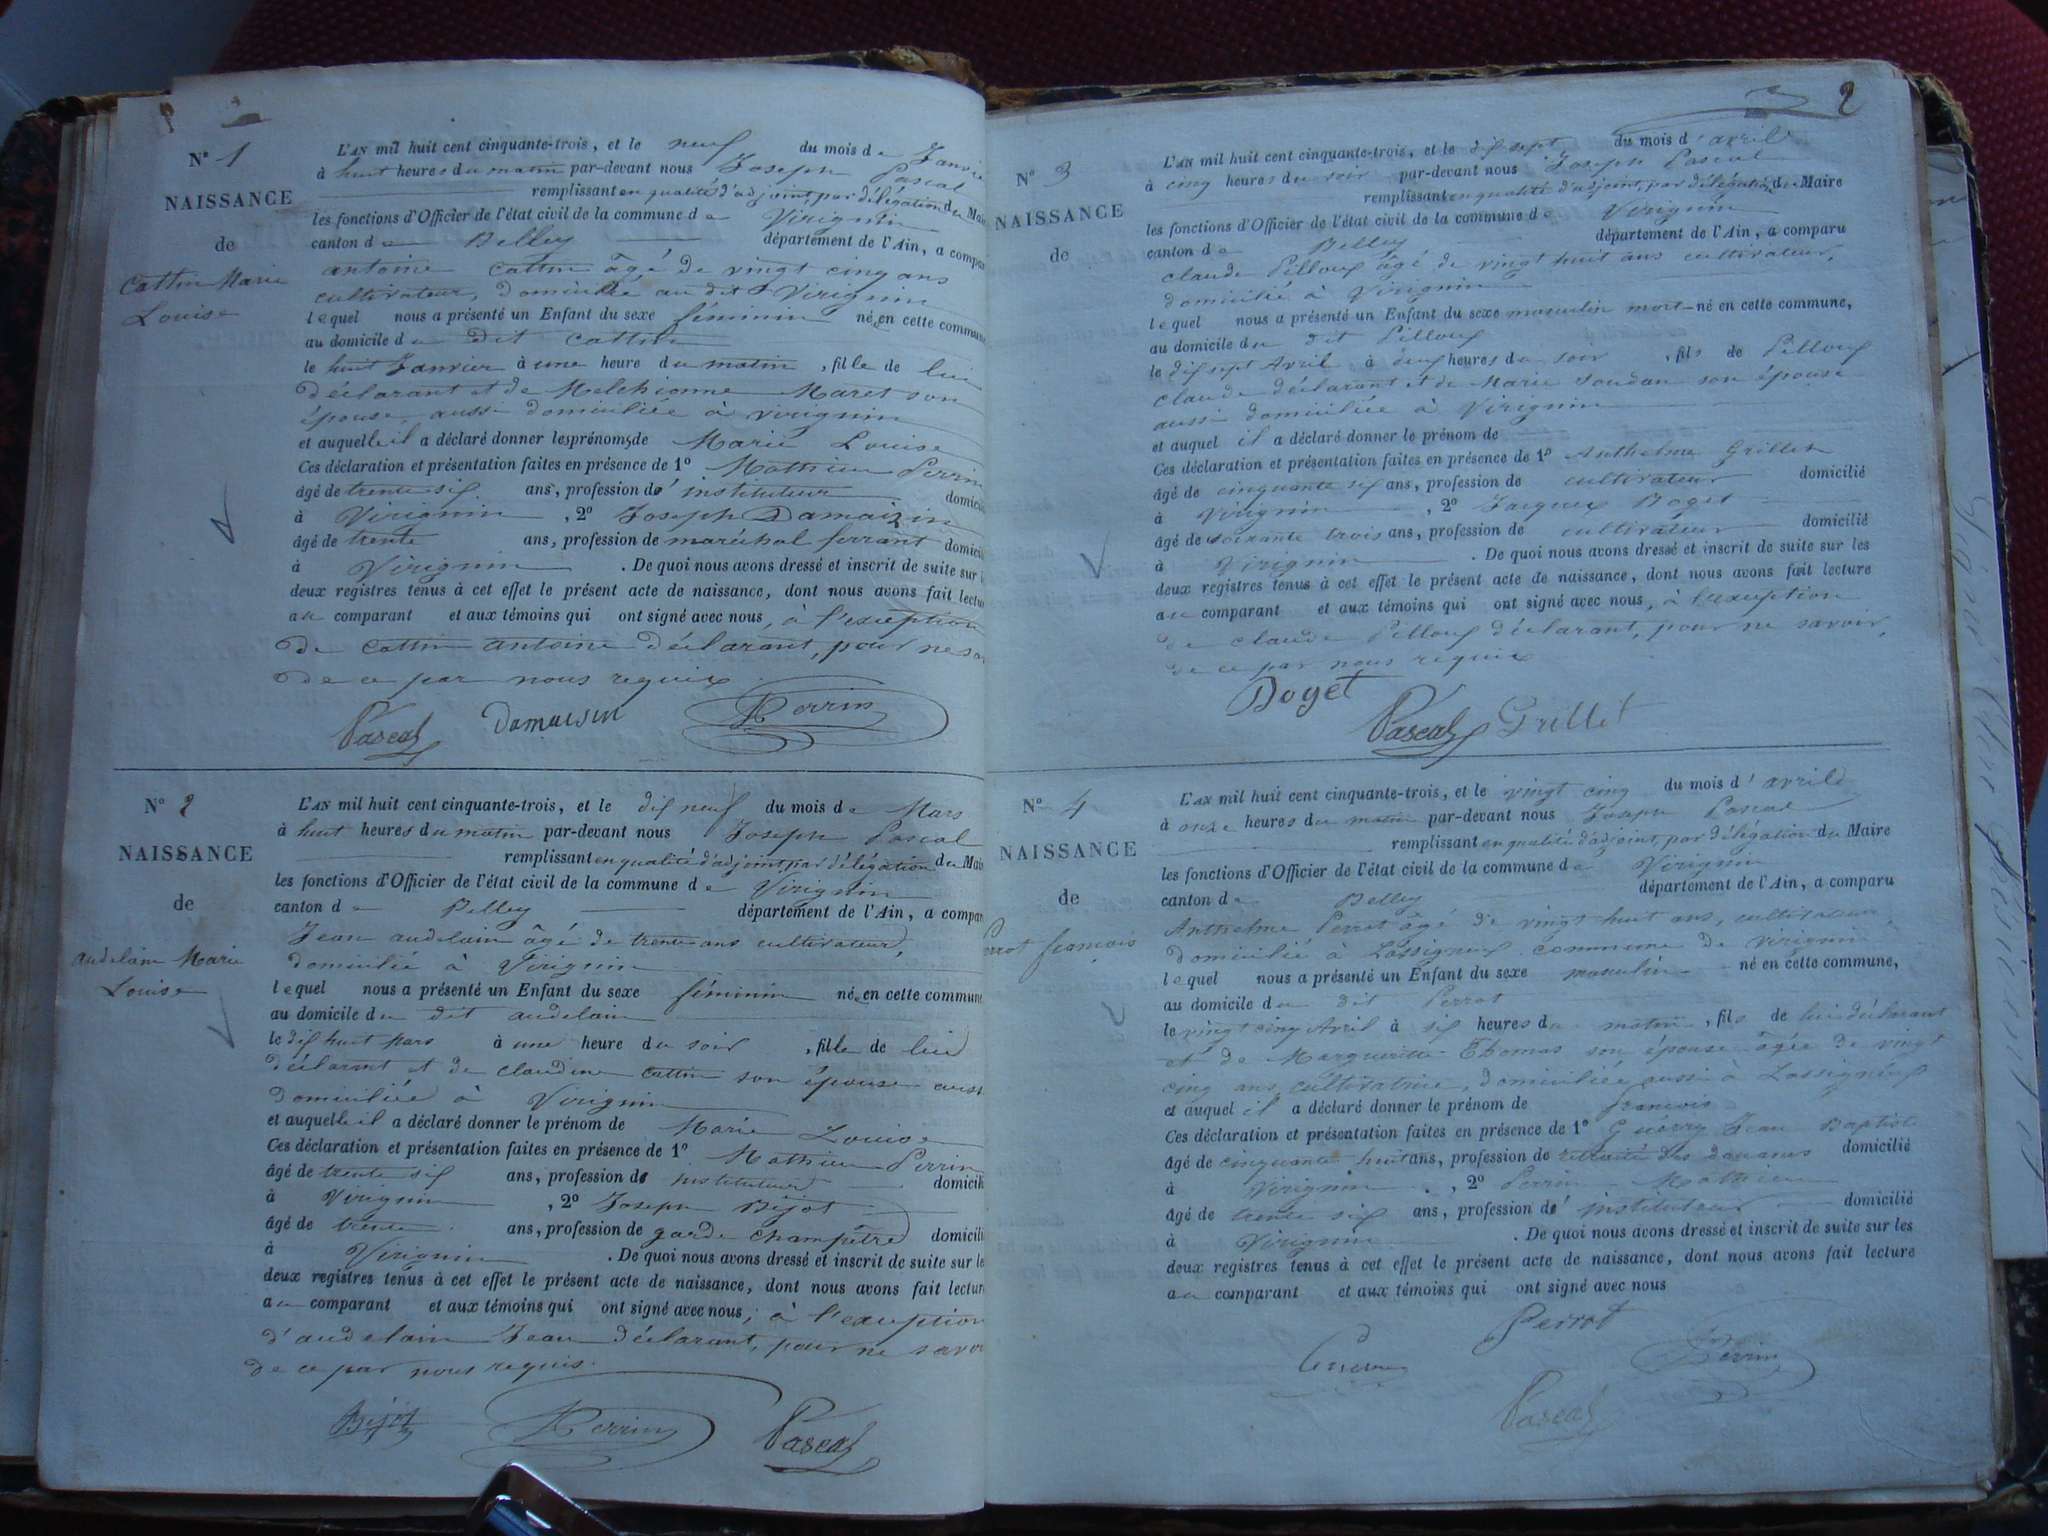 N° 1
NAISSANCE
de
Cattin Marie
Louise
L'AN mil huit cent cinquante-trois, et le neuf du mois de Janvier
à huit heures du matin par-devant nous Joseph Pascal
remplissant en qualité d'adjoint, par délégation du Mai
les fonctions d'Officier de l'état civil de la commune de Virignin
canton de Belley département de l'Ain, a compar
antoine Cattin âgé de vingt cinq ans
cultivateur, domicilié au dit Virignin
lequel nous a présenté un Enfant du sexe féminin née en cette commune
au domicile du dit Cattin
le huit Janvier à une heure du matin, fille de lui
déclarant et de Melchionne Maret son
épouse, aussi domiciliée à Virignin
et auquelle il a déclaré donner les prénoms de Marie Louise
Ces déclaration et présentation faites en présence de 1° Mathieu Perrin
âgé de trente six ans, profession d'instituteur domicil
à Virignin, 2° Joseph Damaizin
âgé de trente ans, profession de maréchal ferrant domicil
à Virignin. De quoi nous avons dressé et inscrit de suite sur l
deux registres tenus à cet effet le présent acte de naissance, dont nous avons fait lectu
au comparant et aux témoins qui ont signé avec nous, à l'exception
de Cattin antoine déclarant, pour ne sa
de ce par nous requis.
Pascal Damaisin Perrin
N° 2
NAISSANCE
de
audelain Marie
Louise
L'AN mil huit cent cinquante-trois, et le dix neuf du mois de Mars
à huit heures du matin par-devant nous Joseph Pascal
remplissant en qualité d'adjoint, par délégation du Mai
les fonctions d'Officier de l'état civil de la commune de Virignin
canton de Belley département de l'Ain, a compar
Jean audelain âgé de trente ans cultivateur,
domicilié à Virignin
lequel nous a présenté un Enfant du sexe féminin née en cette commune
au domicile du dit audelain
le dix huit Mars à une heure du soir, fille de lui
déclarant et de claudine Cattin son épouse aussi
domiciliée à Virignin
et auquelle il a déclaré donner le prénom de Marie Louise
Ces déclaration et présentation faites en présence de 1° Mathieu Perrin
âgé de trente six ans, profession d'instituteur domicili
à Virignin, 2° Joseph Bejot
âgé de trente ans, profession de garde champêtre domicili
à Virignin. De quoi nous avons dressé et inscrit de suite sur le
deux registres tenus à cet effet le présent acte de naissance, dont nous avons fait lectur
au comparant et aux témoins qui ont signé avec nous, à l'exception
d'audelain Jean déclarant, pour ne savo
de ce par nous requis.
Bejot Perrin Pascal
2
N° 3
NAISSANCE
de
L'AN mil huit cent cinquante-trois, et le dix sept du mois d'avril
à cinq heures du soir par-devant nous Joseph Pascal
remplissant en qualité d'adjoint, par délégation du Maire
les fonctions d'Officier de l'état civil de la commune de Virignin
canton de Belley département de l'Ain, a comparu
claude Pilloux âgé de vingt huit ans cultivateur,
domicilié à Virignin
lequel nous a présenté un Enfant du sexe masculin mort-né en cette commune,
au domicile du dit Pilloux
le dix sept Avril à deux heures du soir, fils de Pilloux
claude déclarant et de Marie Soudan son épouse
aussi domiciliée à Virignin
et auquel il a déclaré donner le prénom de
Ces déclaration et présentation faites en présence de 1° Anthelme Grillet
âgé de cinquante six ans, profession de cultivateur domicilié
à Virignin, 2° Jacques Doget
âgé de soixante trois ans, profession de cultivateur domicilié
à Virignin. De quoi nous avons dressé et inscrit de suite sur les
deux registres tenus à cet effet le présent acte de naissance, dont nous avons fait lecture
au comparant et aux témoins qui ont signé avec nous, à l'exception
de claude Pilloux déclarant, pour ne savoir,
de ce par nous requis
Doget Pascal Grillet
N° 4
NAISSANCE
de
Perrot françois
L'AN mil huit cent cinquante-trois, et le vingt cinq du mois d'avril
à onze heures du matin par-devant nous Joseph Pascal
remplissant en qualité d'adjoint, par délégation du Maire
les fonctions d'Officier de l'état civil de la commune de Virignin
canton de Belley département de l'Ain, a comparu
Anthelme Perrot âgé de vingt huit ans, cultivateur,
domicilié à Lassignieux commune de Virignin
lequel nous a présenté un Enfant du sexe masculin né en cette commune,
au domicile du dit Perrot
le vingt cinq Avril à six heures du matin, fils de lui déclarant
et de Margueritte Thomas son épouse âgée de vingt
cinq ans, cultivatrice, domiciliée aussi à Lassignieux
et auquel il a déclaré donner le prénom de françois
Ces déclaration et présentation faites en présence de 1° Guerry Jean Baptiste
âgé de cinquante huit ans, profession de retraité des douanes domicilié
à Virignin, 2° Perrin Mathieu
âgé de trente six ans, profession d'instituteur domicilié
à Virignin. De quoi nous avons dressé et inscrit de suite sur les
deux registres tenus à cet effet le présent acte de naissance, dont nous avons fait lecture
au comparant et aux témoins qui ont signé avec nous
Perrot
Perrin
Pascal